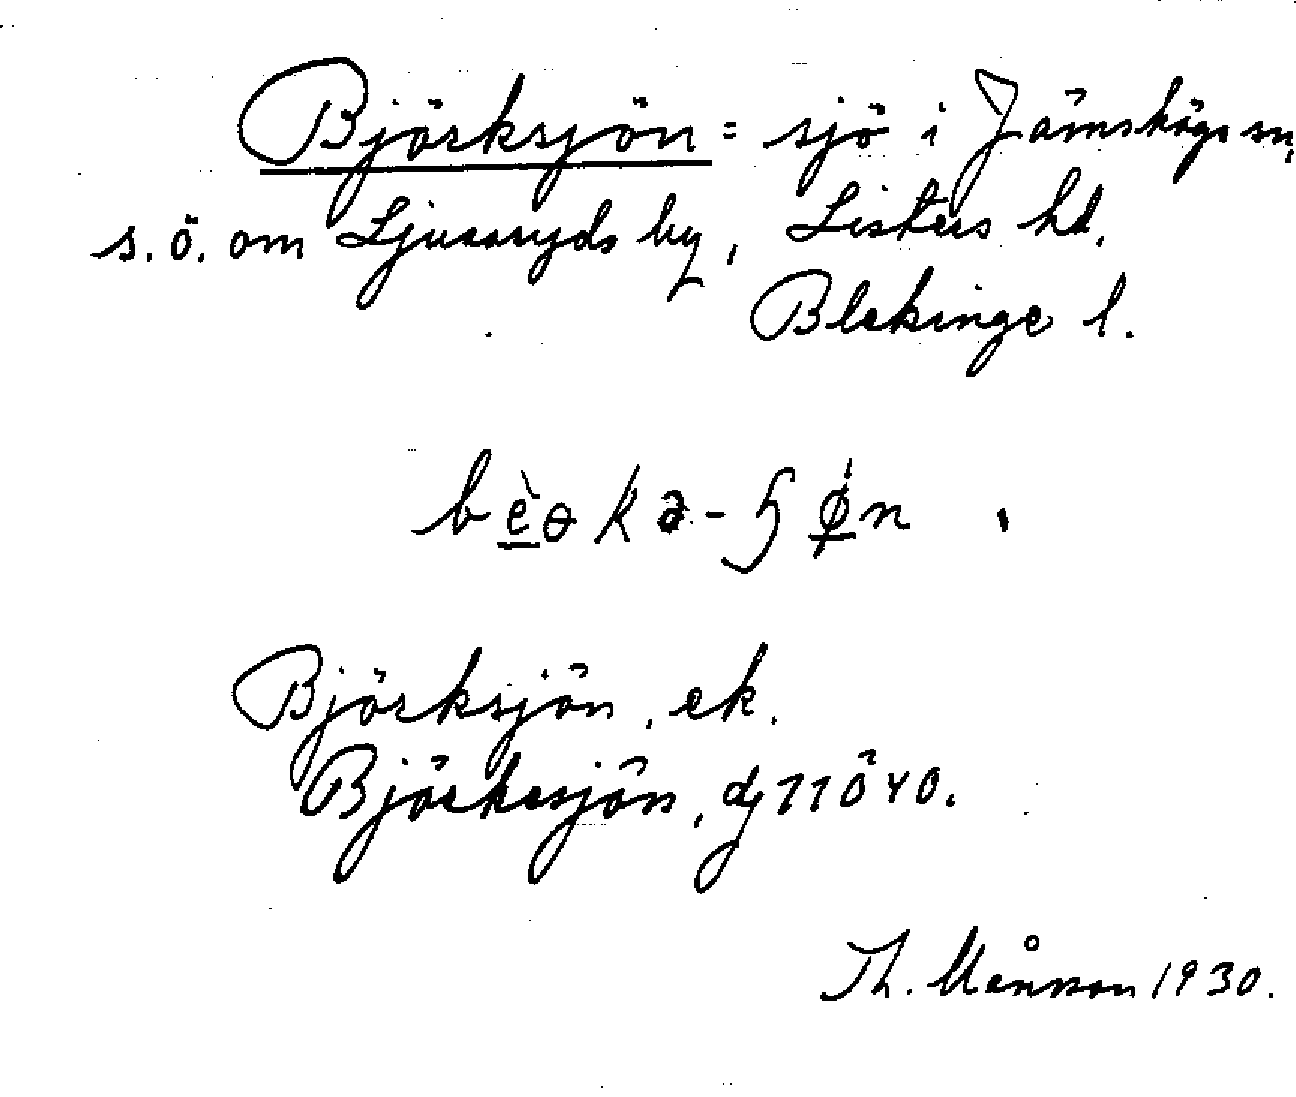 Björksjön = sjö i Jämshögs sn,
s.ö. om Ljusaryds by, Listers hd,
Blekinge l.
Björksjön, ek.
Björkesjön, dj 11 Ö 40.
Th. Månsson 1930.